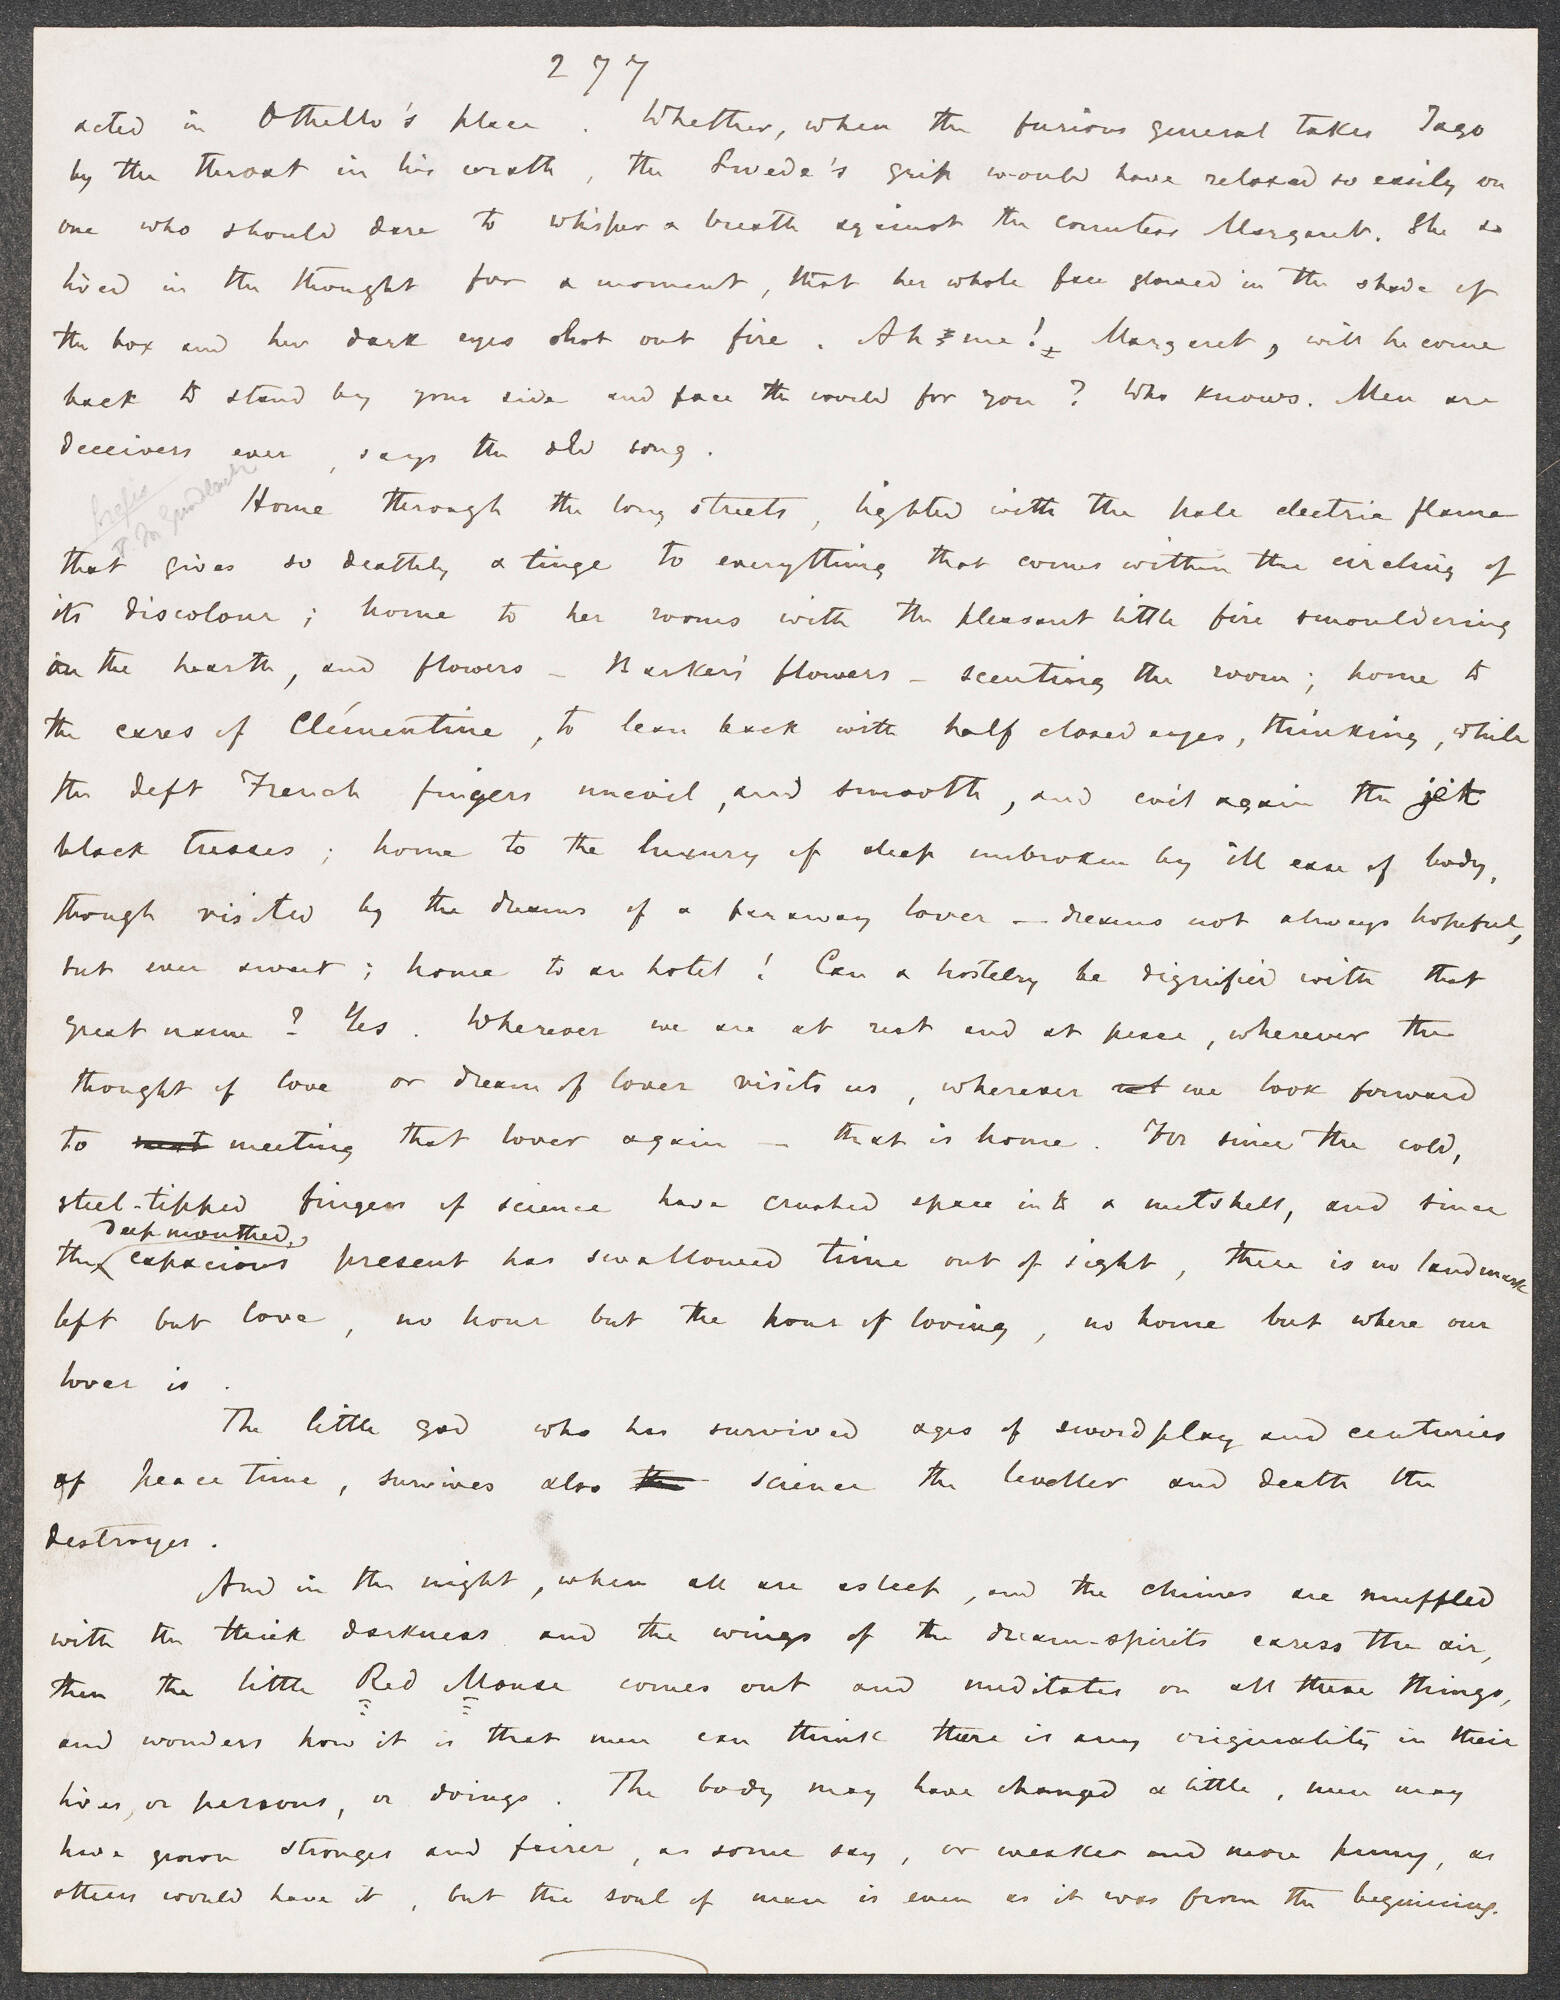 277
acted in Othello's place. Whether, when the furious general takes Iago
by the throat in his wrath, the Swede's grip would have relaxed so easily on
one who should dare to whisper a breath against the countess Margaret. She so
lived in the thought for a moment, that her whole face glowed in the shade of
the box and her dark eyes shot out fire. Ah me! Margaret, will he come
back to stand by your side and face the world for you? Who knows. Men are
deceivers ever, says the old song.
Home through the long streets, lighted with the pale electric flame
that gives so deathly a tinge to everything that comes within the circling of
its discolour; home to her rooms with the pleasant little fire smouldering
on the hearth, and flowers – Barker's flowers – scenting the room; home to
the cares of Clémentine, to lean back with half closed eyes, thinking, while
the deft French fingers uncoil, and smooth, and coil again the jet
black tresses; home to the luxury of sleep unbroken by ill ease of body,
though visited by the dreams of a far away lover – dreams not always hopeful,
but ever sweet; home to an hotel! Can a hostelry be dignified with that
great name? Yes. Wherever we are at rest and at peace, wherever the
thought of love or dream of lover visits us, wherever we look forward
to meeting that lover again – that is home. For since the cold,
steel-tipped fingers of science have crushed space into a nutshell, and since
deep mouthed,
the capacious present has swallowed time out of sight, there is no landmark
left but love, no hour but the hour of loving, no home but where our
lover is.
The little god who has survived ages of sword play and centuries
of peace time, survives also science the leveller and death the
destroyer.
And in the night, when all are asleep, and the chimes are muffled
with the thick darkness and the wings of the dream-spirits caress the air,
then the little Red Mouse comes out and meditates on all these things,
and wonders how it is that men can think there is any originality in their
lives, or persons, or doings. The body may have changed a little, men may
have grown stronger and fairer, as some say, or weaker and more puny, as
others would have it, but the soul of man is even as it was from the beginning.